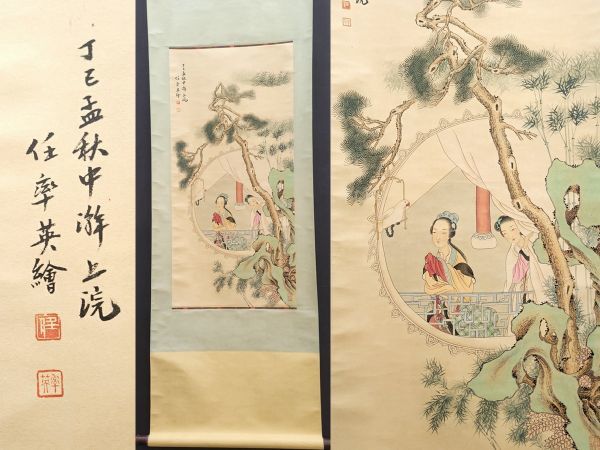 丁巳孟秋中澣上浣
任率英繪